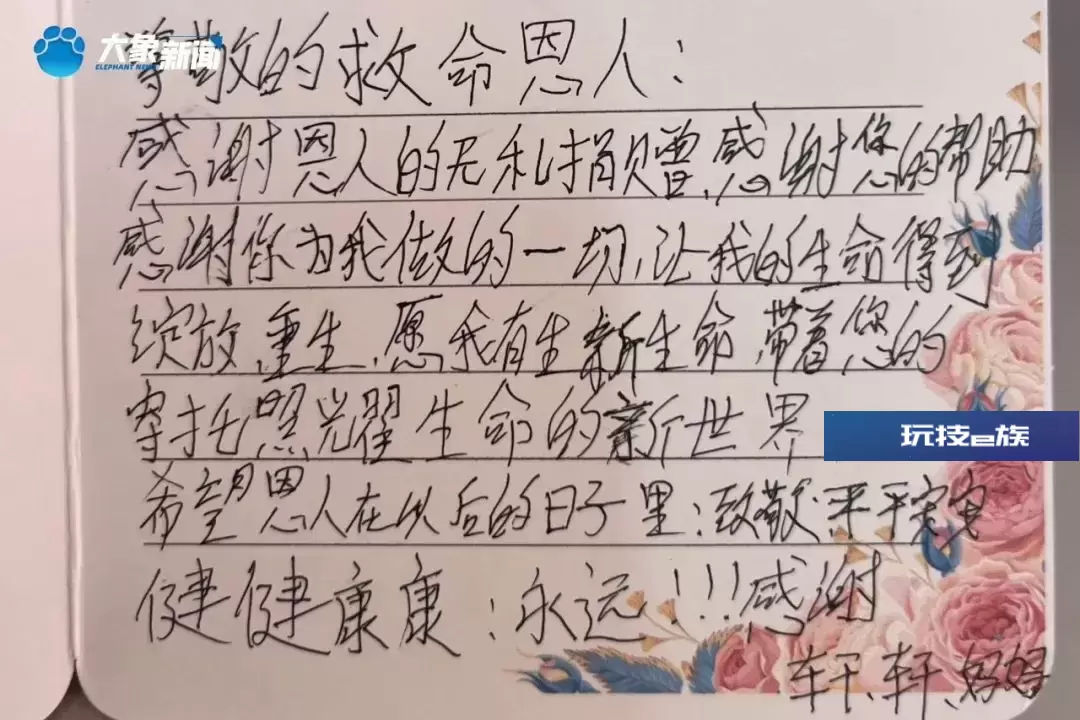 大象新闻
ELEPHANT NEWS
尊敬的救命恩人：
感谢恩人的无私捐赠，感谢您的帮助
感谢你为我做的一切，让我的生命得到
绽放，重生，愿我有生新生命，带着您的
寄托照光耀生命的新世界
玩技e族
希望恩人在以后的日子里：致敬，平平安安
健健康康：永远！！！感谢
轩、轩、妈妈